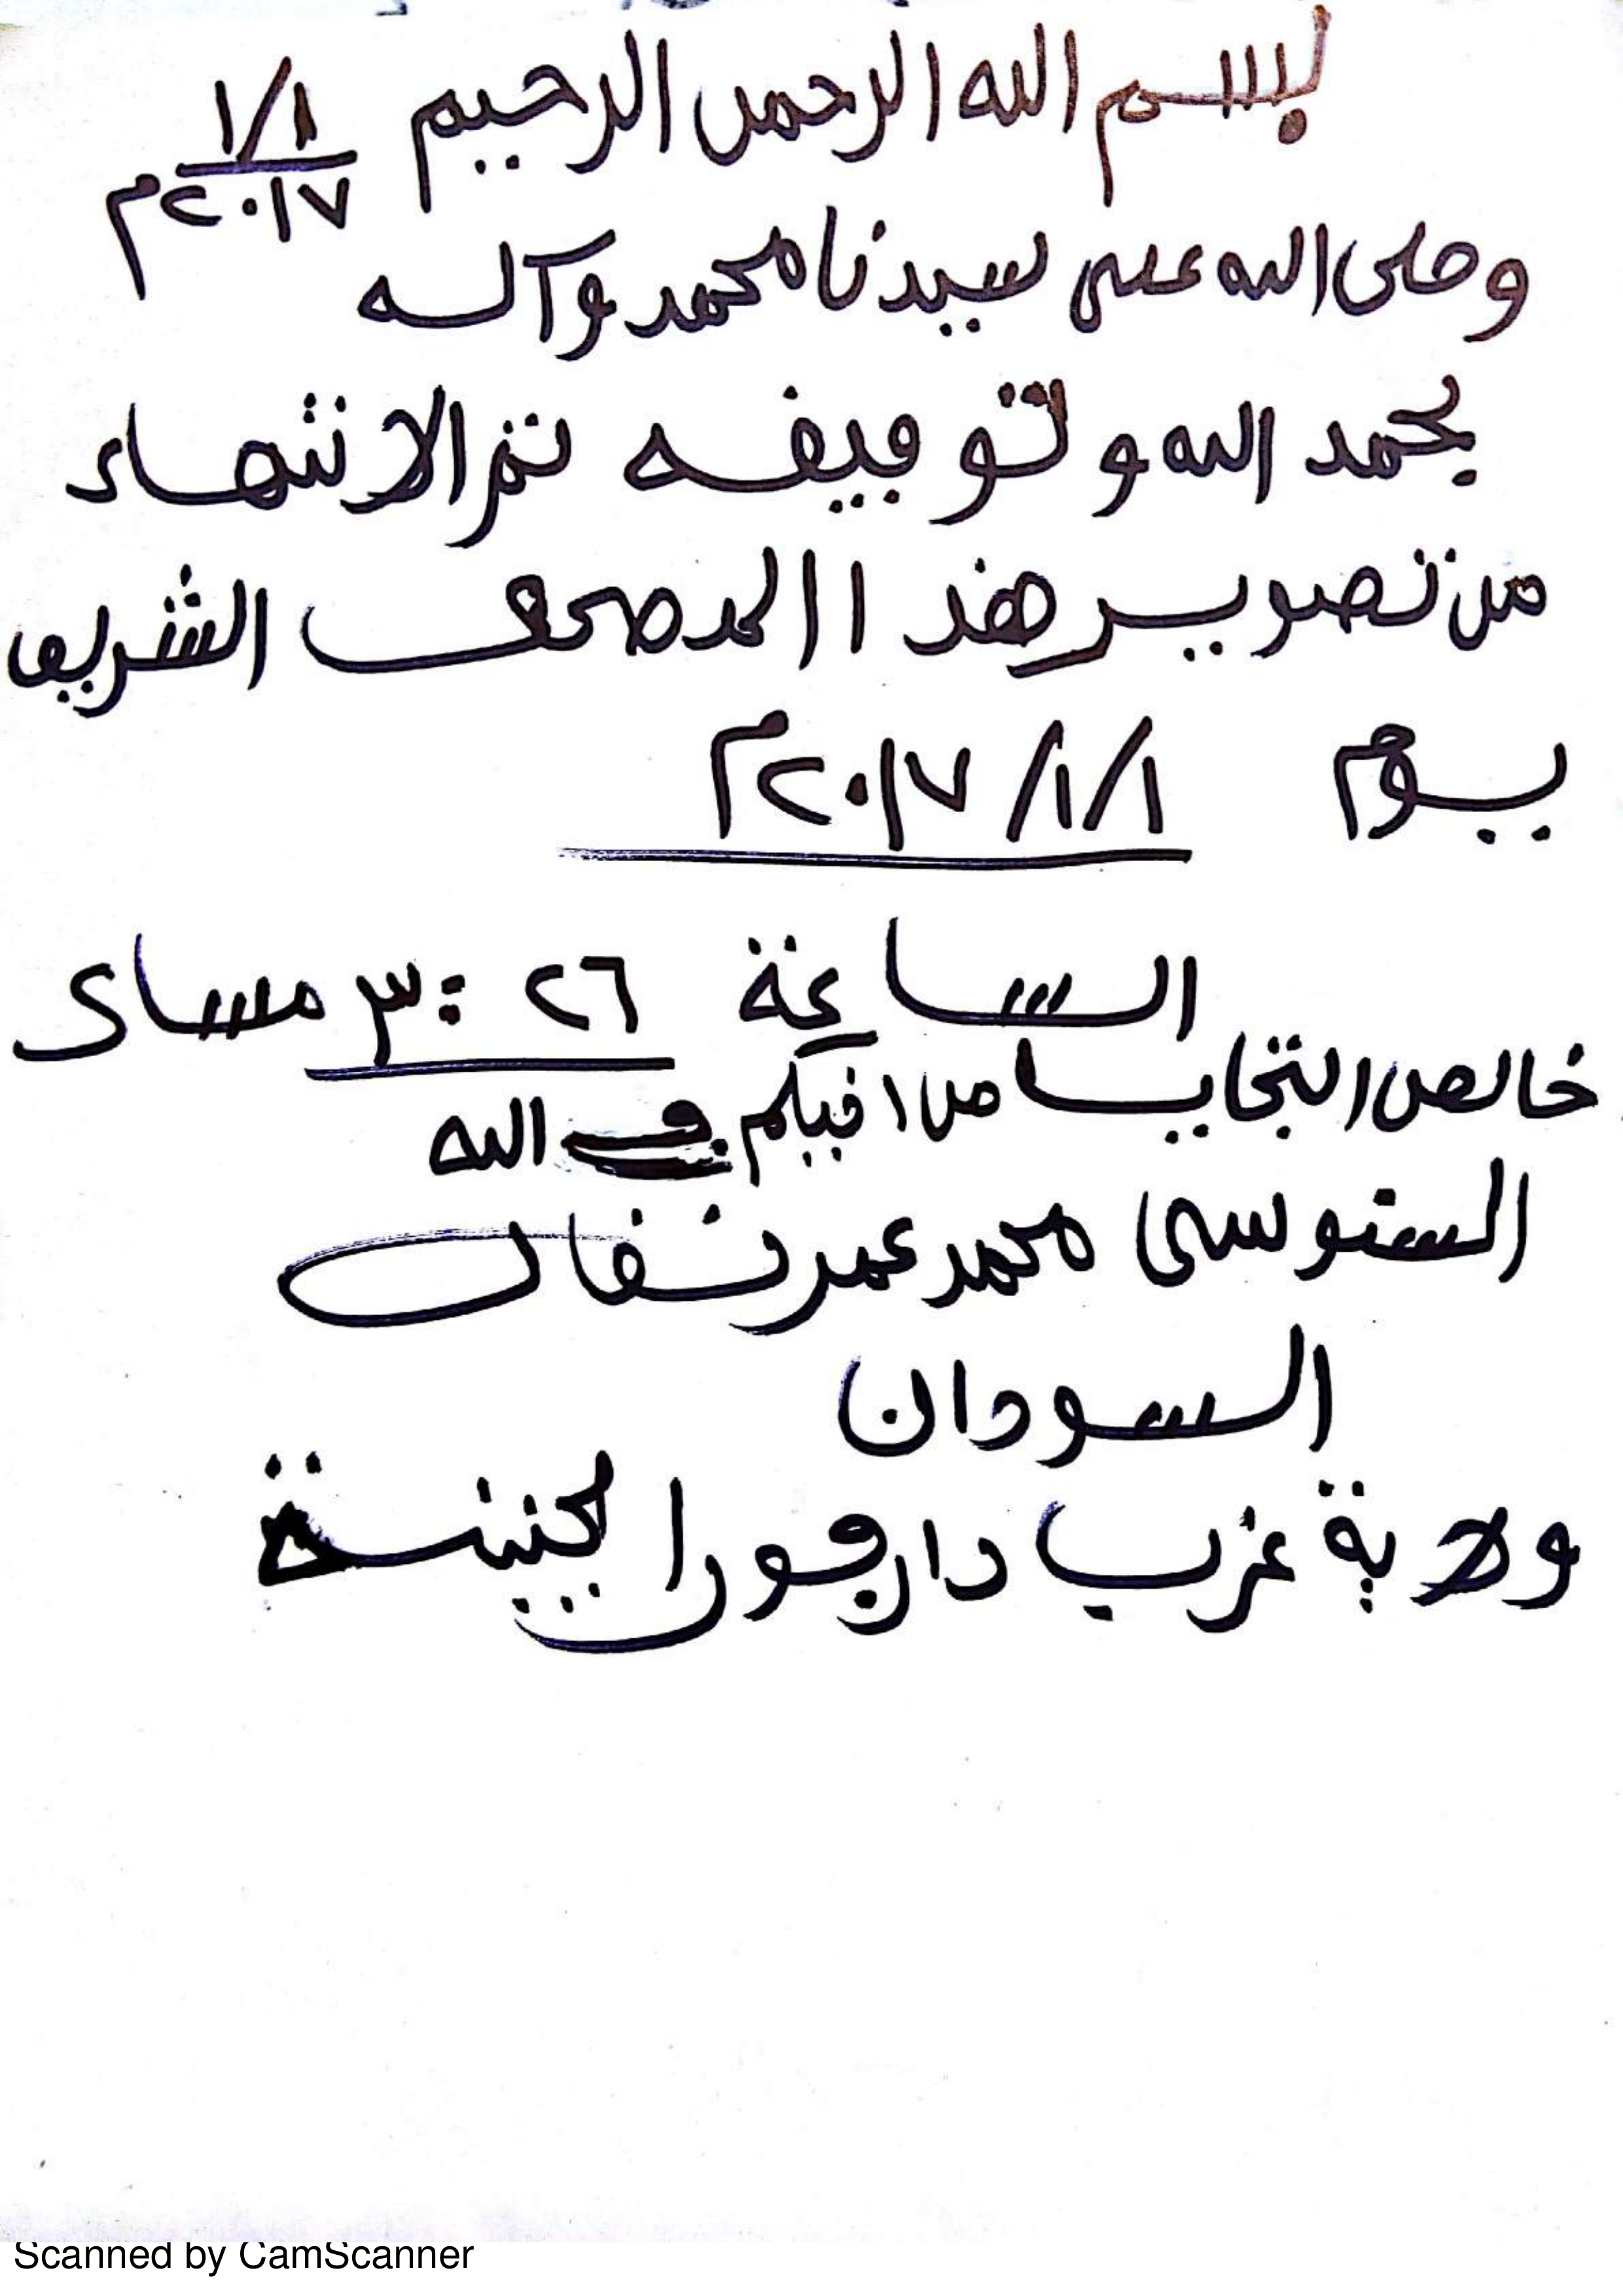 بسم الله الرحمن الرحيم ١/١
٢٠١٧م
وصلى الله على سيدنا محمد وآله
بحمد الله وتوفيفه تم الانتهاء
من تصوير هذا المصحف الشريف
يوم ١/١/٢٠١٧م
الساعة ٢٦ : ٣ مساء
خالص التحايا من اخيكم في الله
السنوسى محمد عمر
السودان
ولاية غرب دارفور الجنينة
Scanned by CamScanner